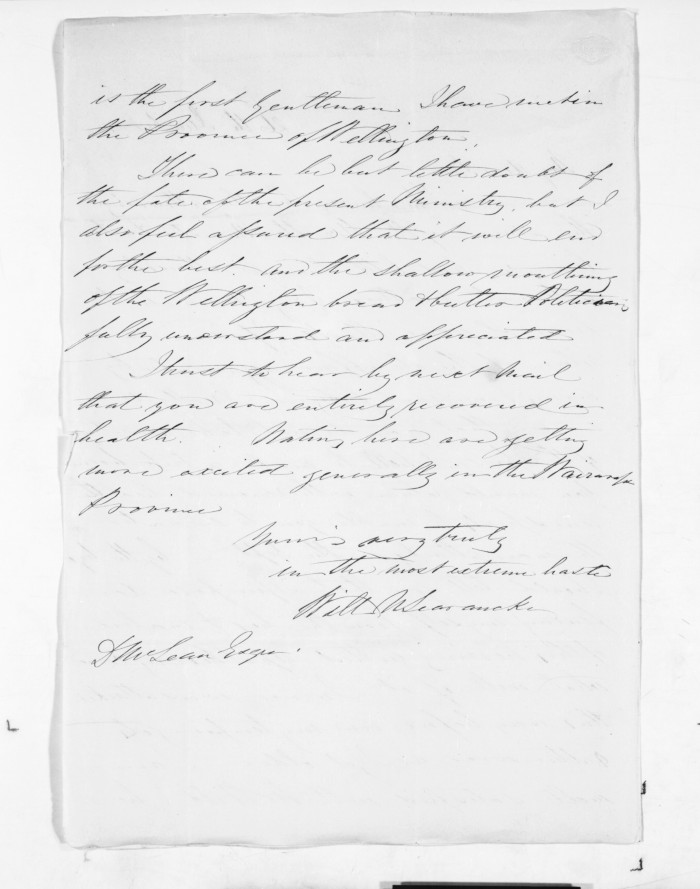 is the first Gentleman I have met in
the Province of Wellington.
There can be but little doubt of
the fate of the present Ministry, but I
also feel assured that it will end
for the best. and the shallow mouthing
of the Wellington bread & butter Politician
fully understood and appreciated
I trust to hear by next Mail
that you are entirely recovered in
health. Natives here are getting
more excited generally in the Wairarapa
Province
Yours very truly
in the most extreme haste
Will N Searancke
D McLean Esqre.